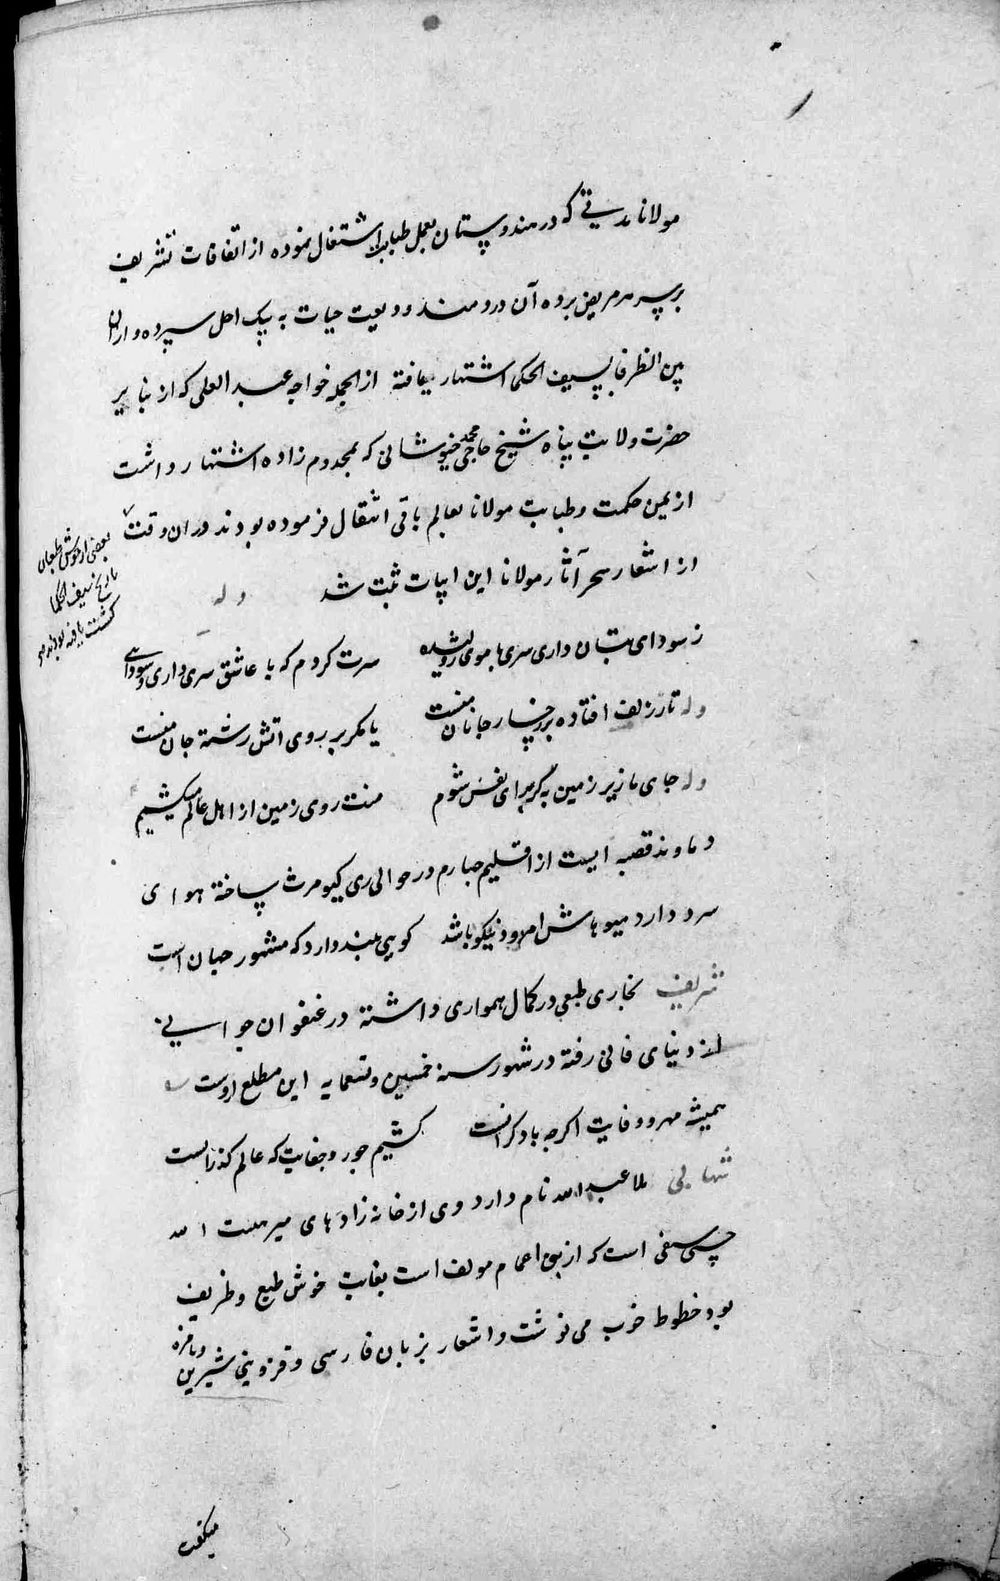 مولانا مدتی که در هندوستان بعمل طبابت اشتغال نموده از اتفاقات تشریف
بر سر هر مریض برده آن دردمند ودیعت حیات به پیک اجل سپرده و از آن
بین الظرفا بسیف الحکما اشتهار یافته از الجمله خواجه عبد العلی که از نبایر
حضرت ولایت پناه شیخ حاجی محمد خبوشانی که بمخدوم زاده اشتهار داشت
از یمن حکمت و طبابت مولانا بعالم باقی انتقال فرموده بودند در ان وقت
بعضی از خوش طبعان
تاریخ سیف الحکما
کشت یافته بودند
از اشعار سحر آثار مولانا این ابیات ثبت شد وله
ز سودای بتان داری سری با موی ژولیده سرت کردم که با عاشق سری داری و سودایی
وله تار زلف افتاده بر رخسار جانان منست یا مکر بر روی اتش رشته جان منست
وله جای ما زیر زمین به کر برای نفس شوم منت روی زمین از اهل عالم میکشیم
دماوند قصبه ایست از اقلیم چهارم در حوالی ری کیومرث ساخته هوای
سرد دارد میوهاش امرود نیکو باشد کوهی بلند دارد که مشهور جهان است
شریف بخاری طبعی در کمال همواری داشته در عنفوان جوانی
از دنیای فانی رفته در شهور سنه خمسین و تسعمایه این مطلع ازوست
همیشه مهر و وفایت اکرچه با دکرانست کشیم جور و جفایت که عالم کذرانست
نهالی ملا عبد الله نام دارد وی از خانه زادهای میر همت الله
سیفی است که از بنی اعمام مولف است بغایت خوش طبع و ظریف
بود خطوط خوب می نوشت و اشعار بزبان فارسی و قزوینی شیرین و بامزه
میکفت